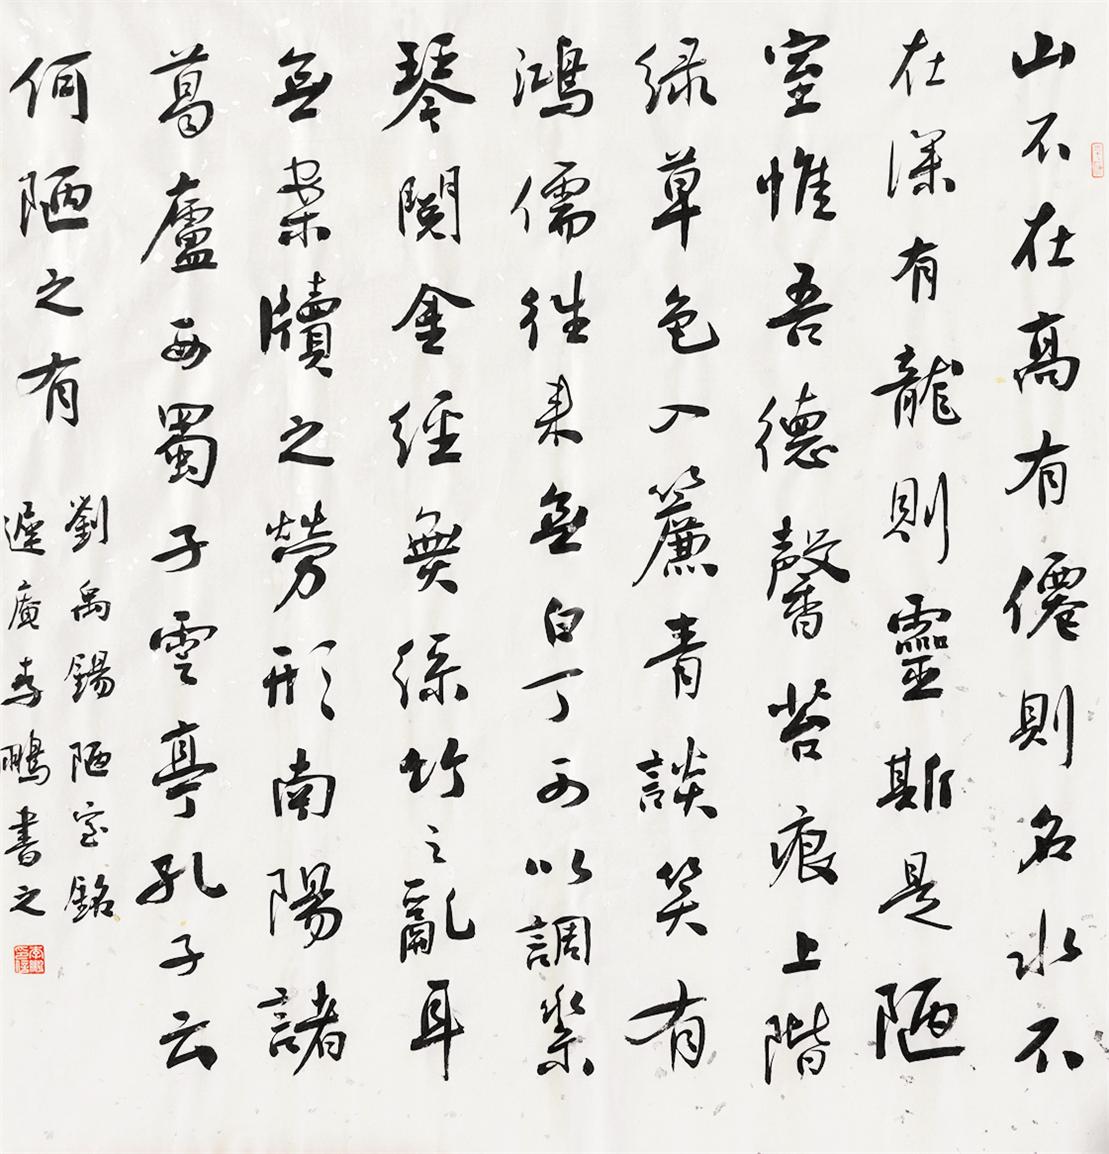 山不在高有僊則名水不
在深有龍則靈斯是陋
室惟吾德馨苔痕上階
緑草色入簾青談笑有
鴻儒往来無白丁可以調素
琴閱金經無絲竹之亂耳
無案牘之勞形南陽諸
葛廬西蜀子雲亭孔子云
何陋之有
劉禹錫陋室銘
遲庵李鵬書之